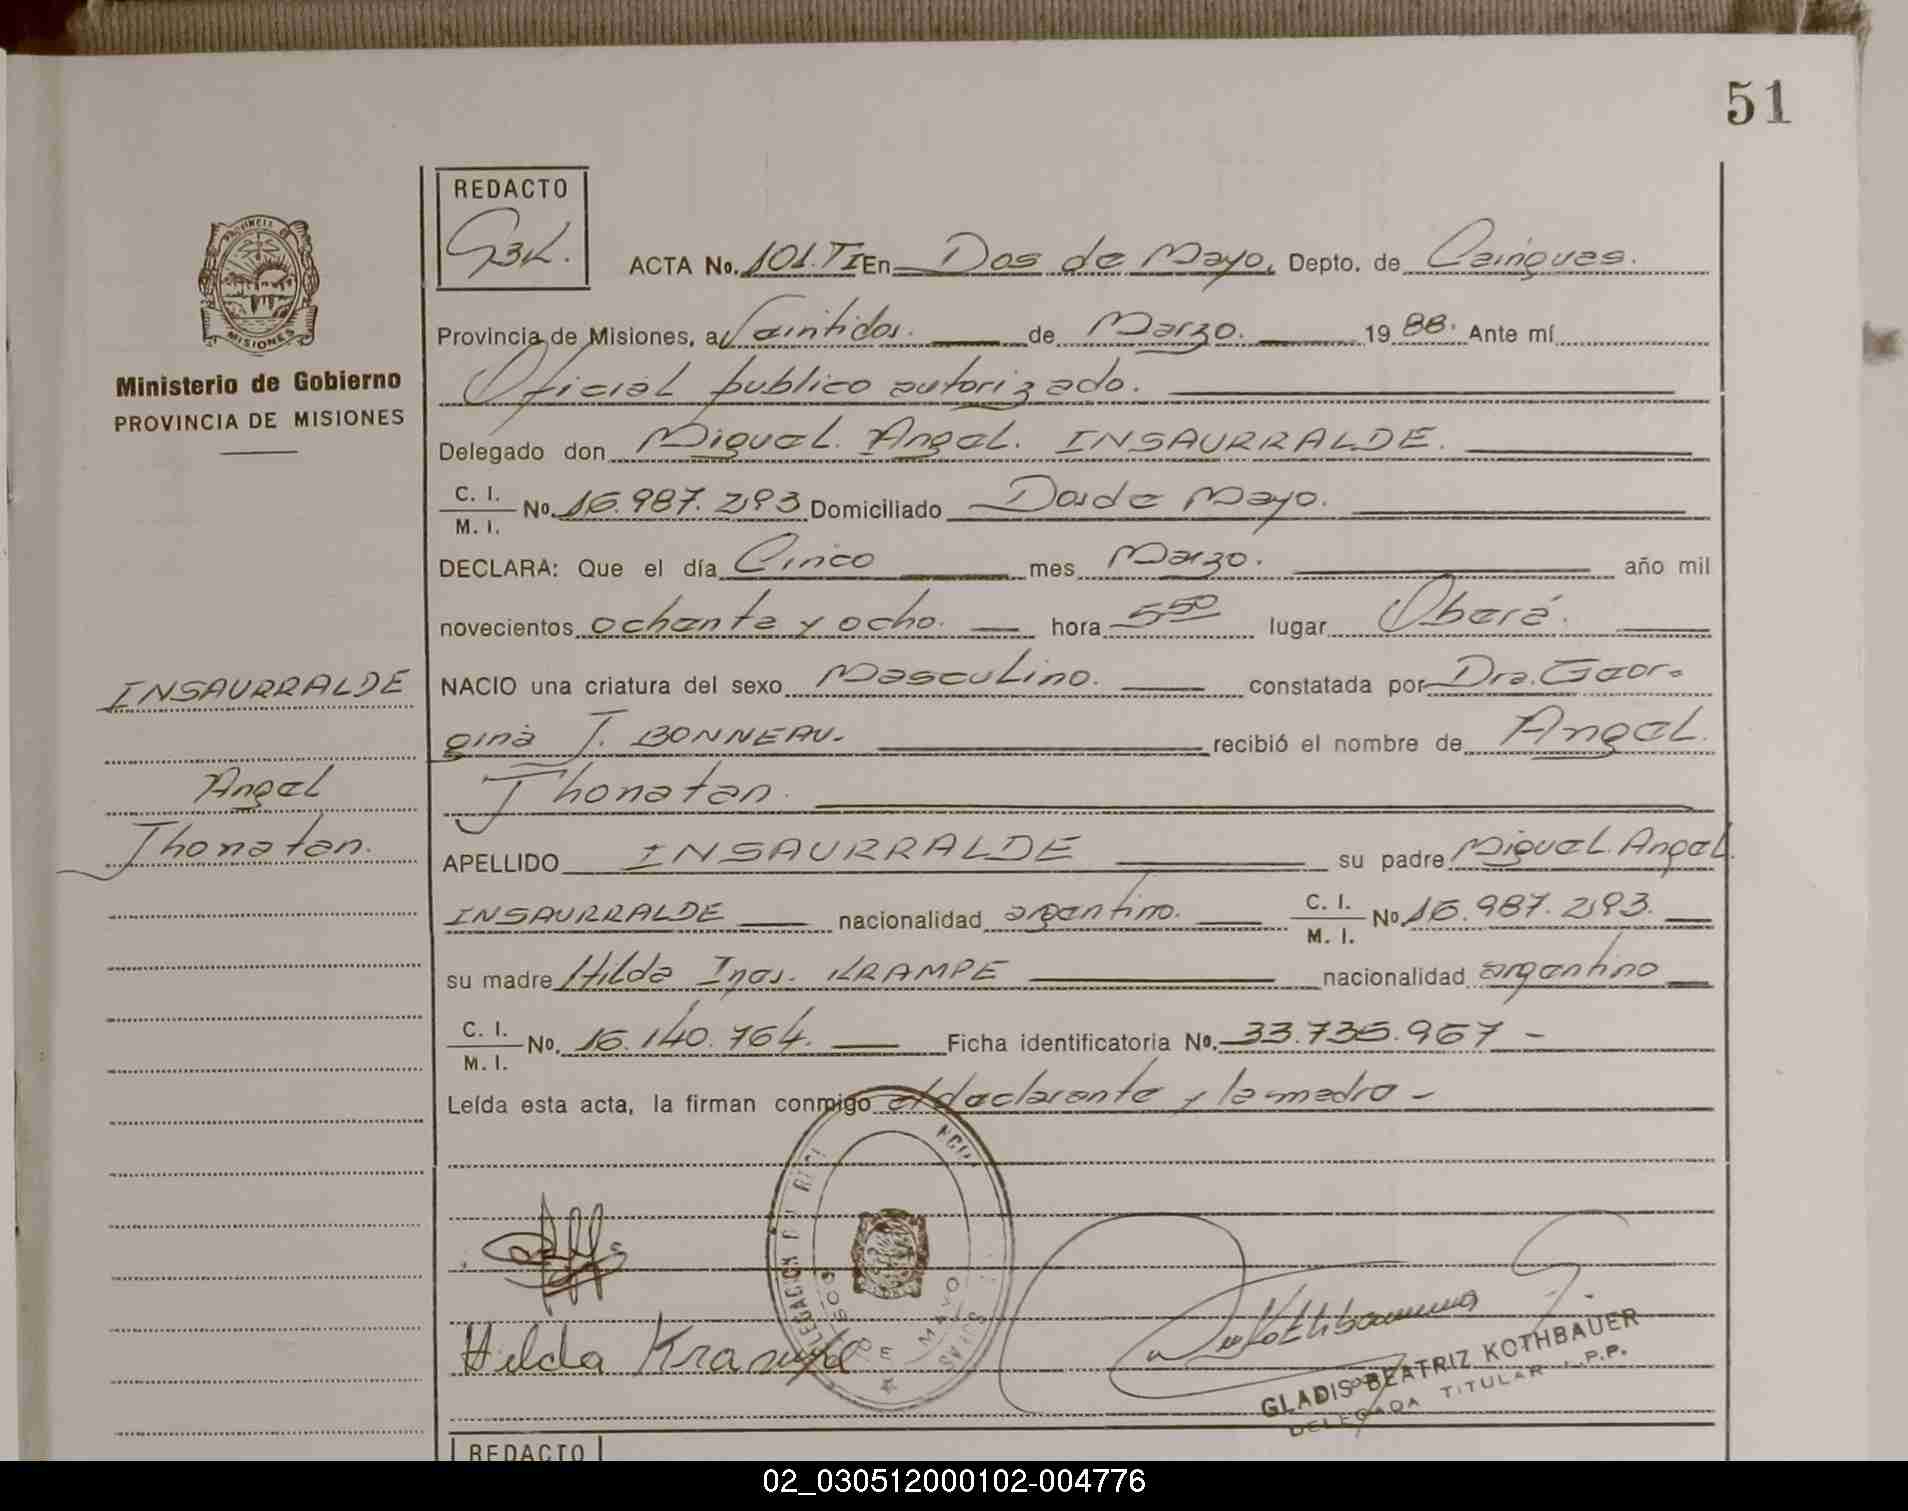 51
REDACTO
GBK.
ACTA No. 101. TI En Dos de Mayo, Depto. de Cainguas.
Provincia de Misiones, a Veintidos. de Marzo. 1988. Ante mí
Oficial publico autorizado.
Delegado don Miguel Angel INSAURRALDE.
C. I.
M. I.
No. 16.987.293 Domiciliado Dos de Mayo.
DECLARA: Que el día Cinco mes Marzo. año mil
novecientos ochenta y ocho. hora 5 50 lugar Oberá.
NACIO una criatura del sexo Masculino. constatada por Dra. Geor-
gina J. BONNEAU. recibió el nombre de Angel
Jhonatan.
APELLIDO INSAURRALDE su padre Miguel Angel
INSAURRALDE nacionalidad argentino. C. I.
M. I.
No. 16.987.293.
su madre Hilda Ines. KRAMPE nacionalidad argentino
C. I.
M. I.
No. 16.140.764. Ficha identificatoria No. 33.735.967 -
Leída esta acta, la firman conmigo el declarante y la madre -
PROVINCIA D
MISIONES
Ministerio de Gobierno
PROVINCIA DE MISIONES
INSAURRALDE
Angel
Jhonatan.
DOS DE MAYO
Hilda Krampe
GLADIS BEATRIZ KOTHBAUER
DELEGADA TITULAR
REDACTO
02_030512000102-004776